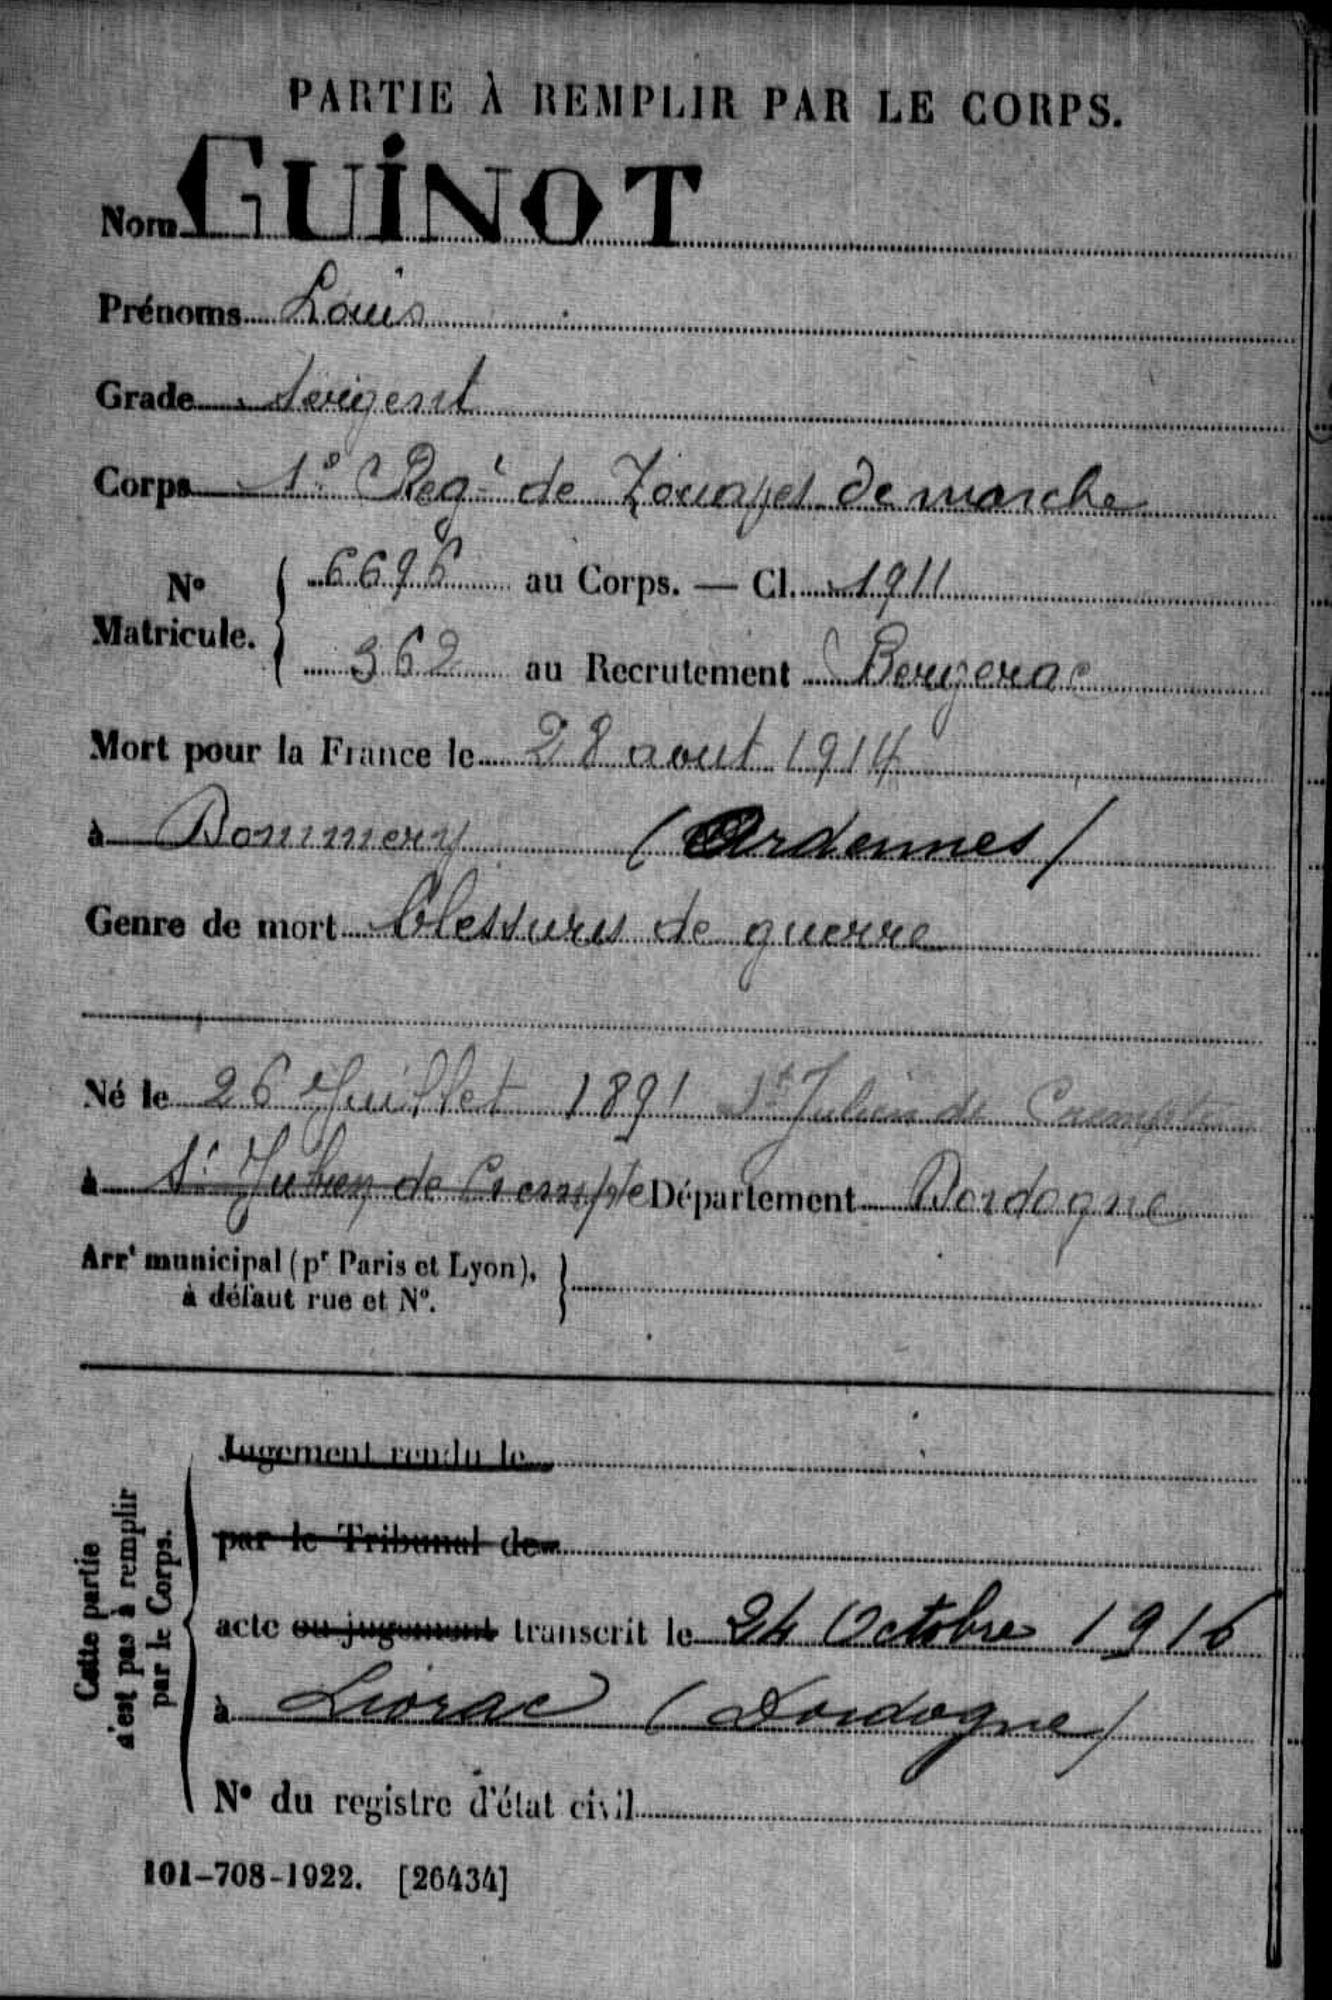 PARTIE À REMPLIR PAR LE CORPS.
Nom GUINOT
Prénoms Louis
Grade Sergent
Corps 1e Regt de Zouaves de marche
No Matricule. { 6696 au Corps. — Cl. 1911
362 au Recrutement Bergerac
Mort pour la France le 28 aout 1914
à Dommery (Ardennes)
Genre de mort blessures de guerre
Né le 26 Juillet 1891 St Julien de Crempse
à St Julien de Crempse Département Dordogne
Arrt municipal (pr Paris et Lyon),
à défaut rue et No.
Cette partie
n'est pas à remplir
par le Corps.
Jugement rendu le
par le Tribunal de
acte ou jugement transcrit le 24 Octobre 1916
à Liorac (Dordogne)
No du registre d'état civil
101-708-1922. [26434]